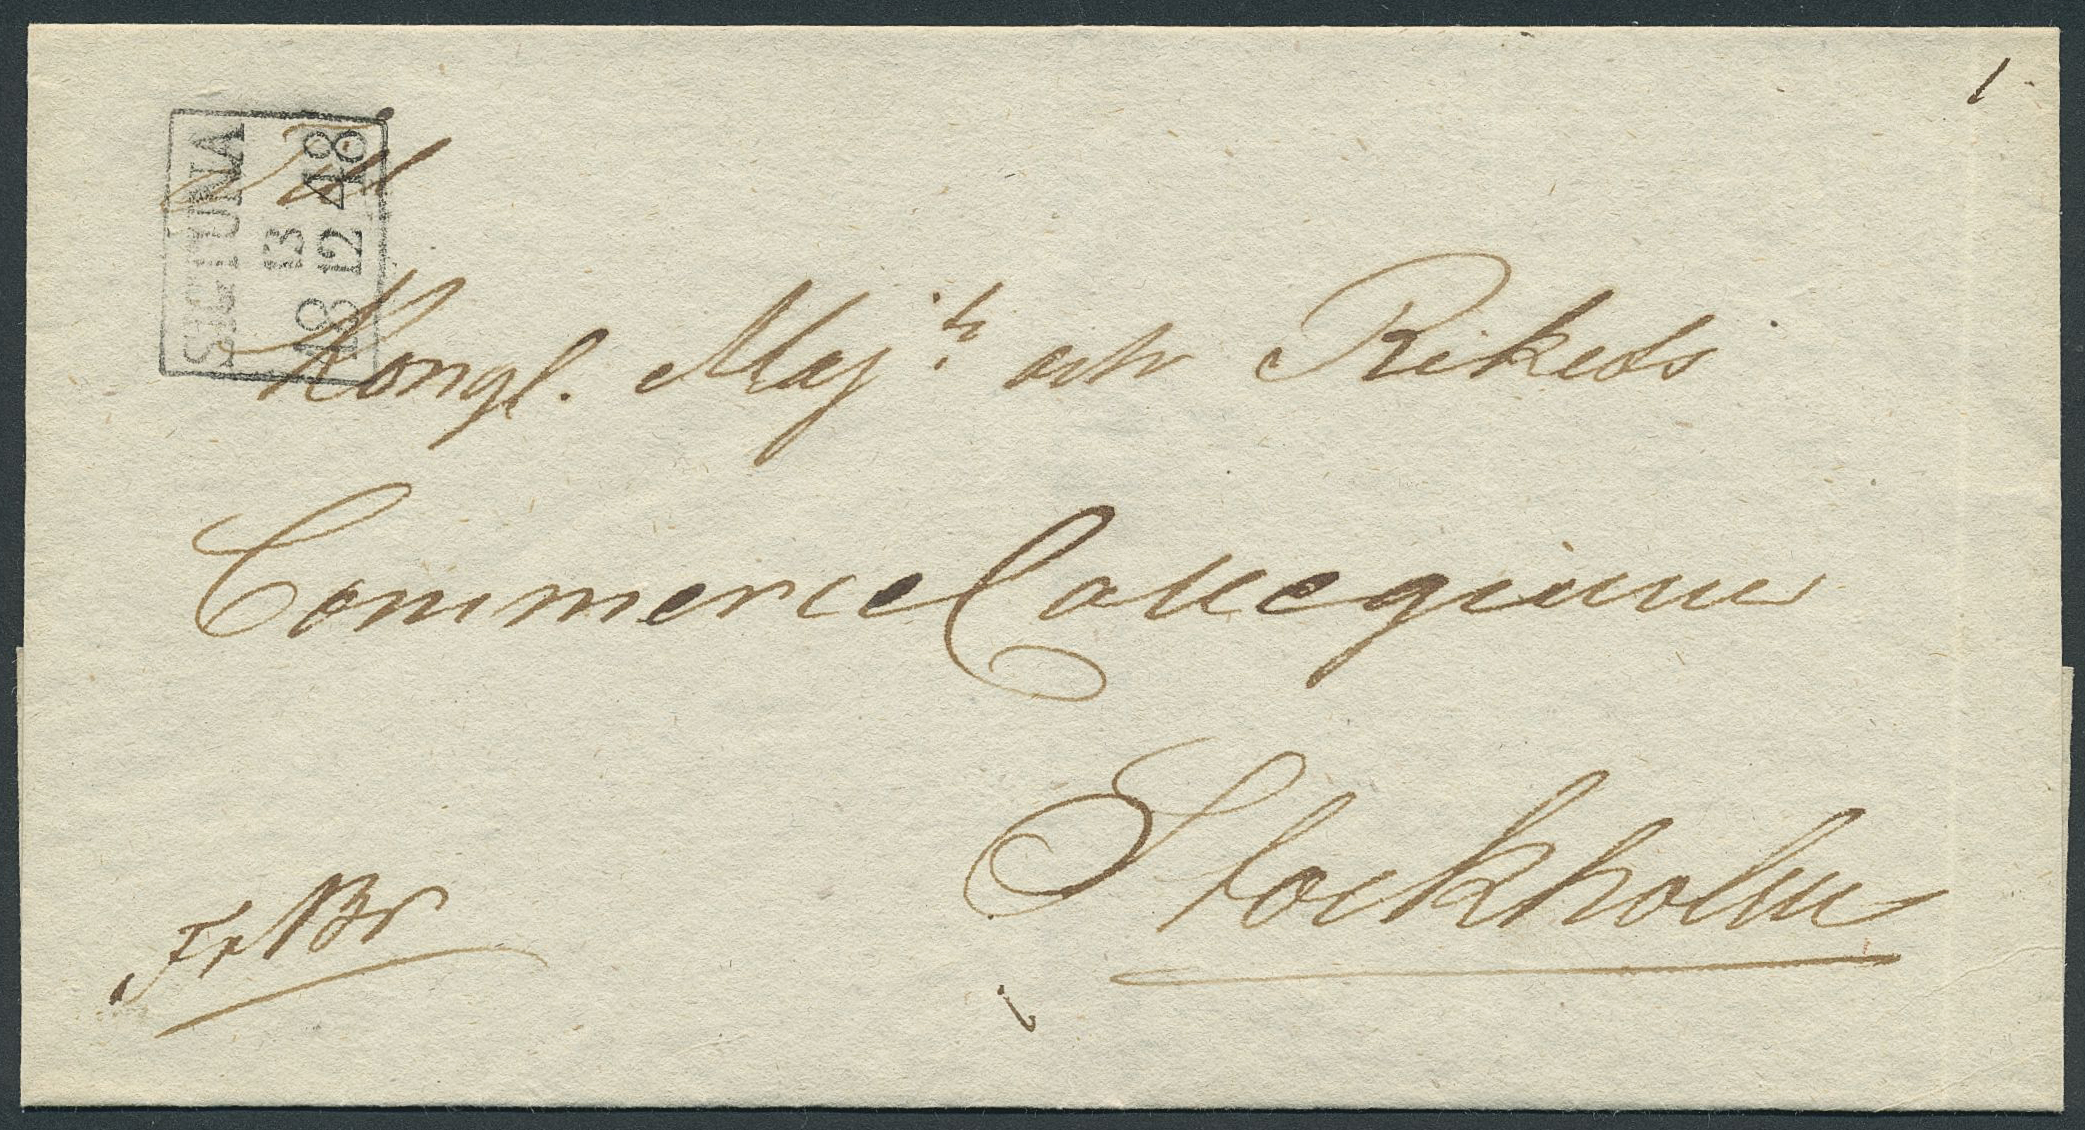 SIGTUNA
13
18 12 48
Till
Kongl. Maj:ts och Rikets
Commerce Collegium
Stockholm
FrBr
1